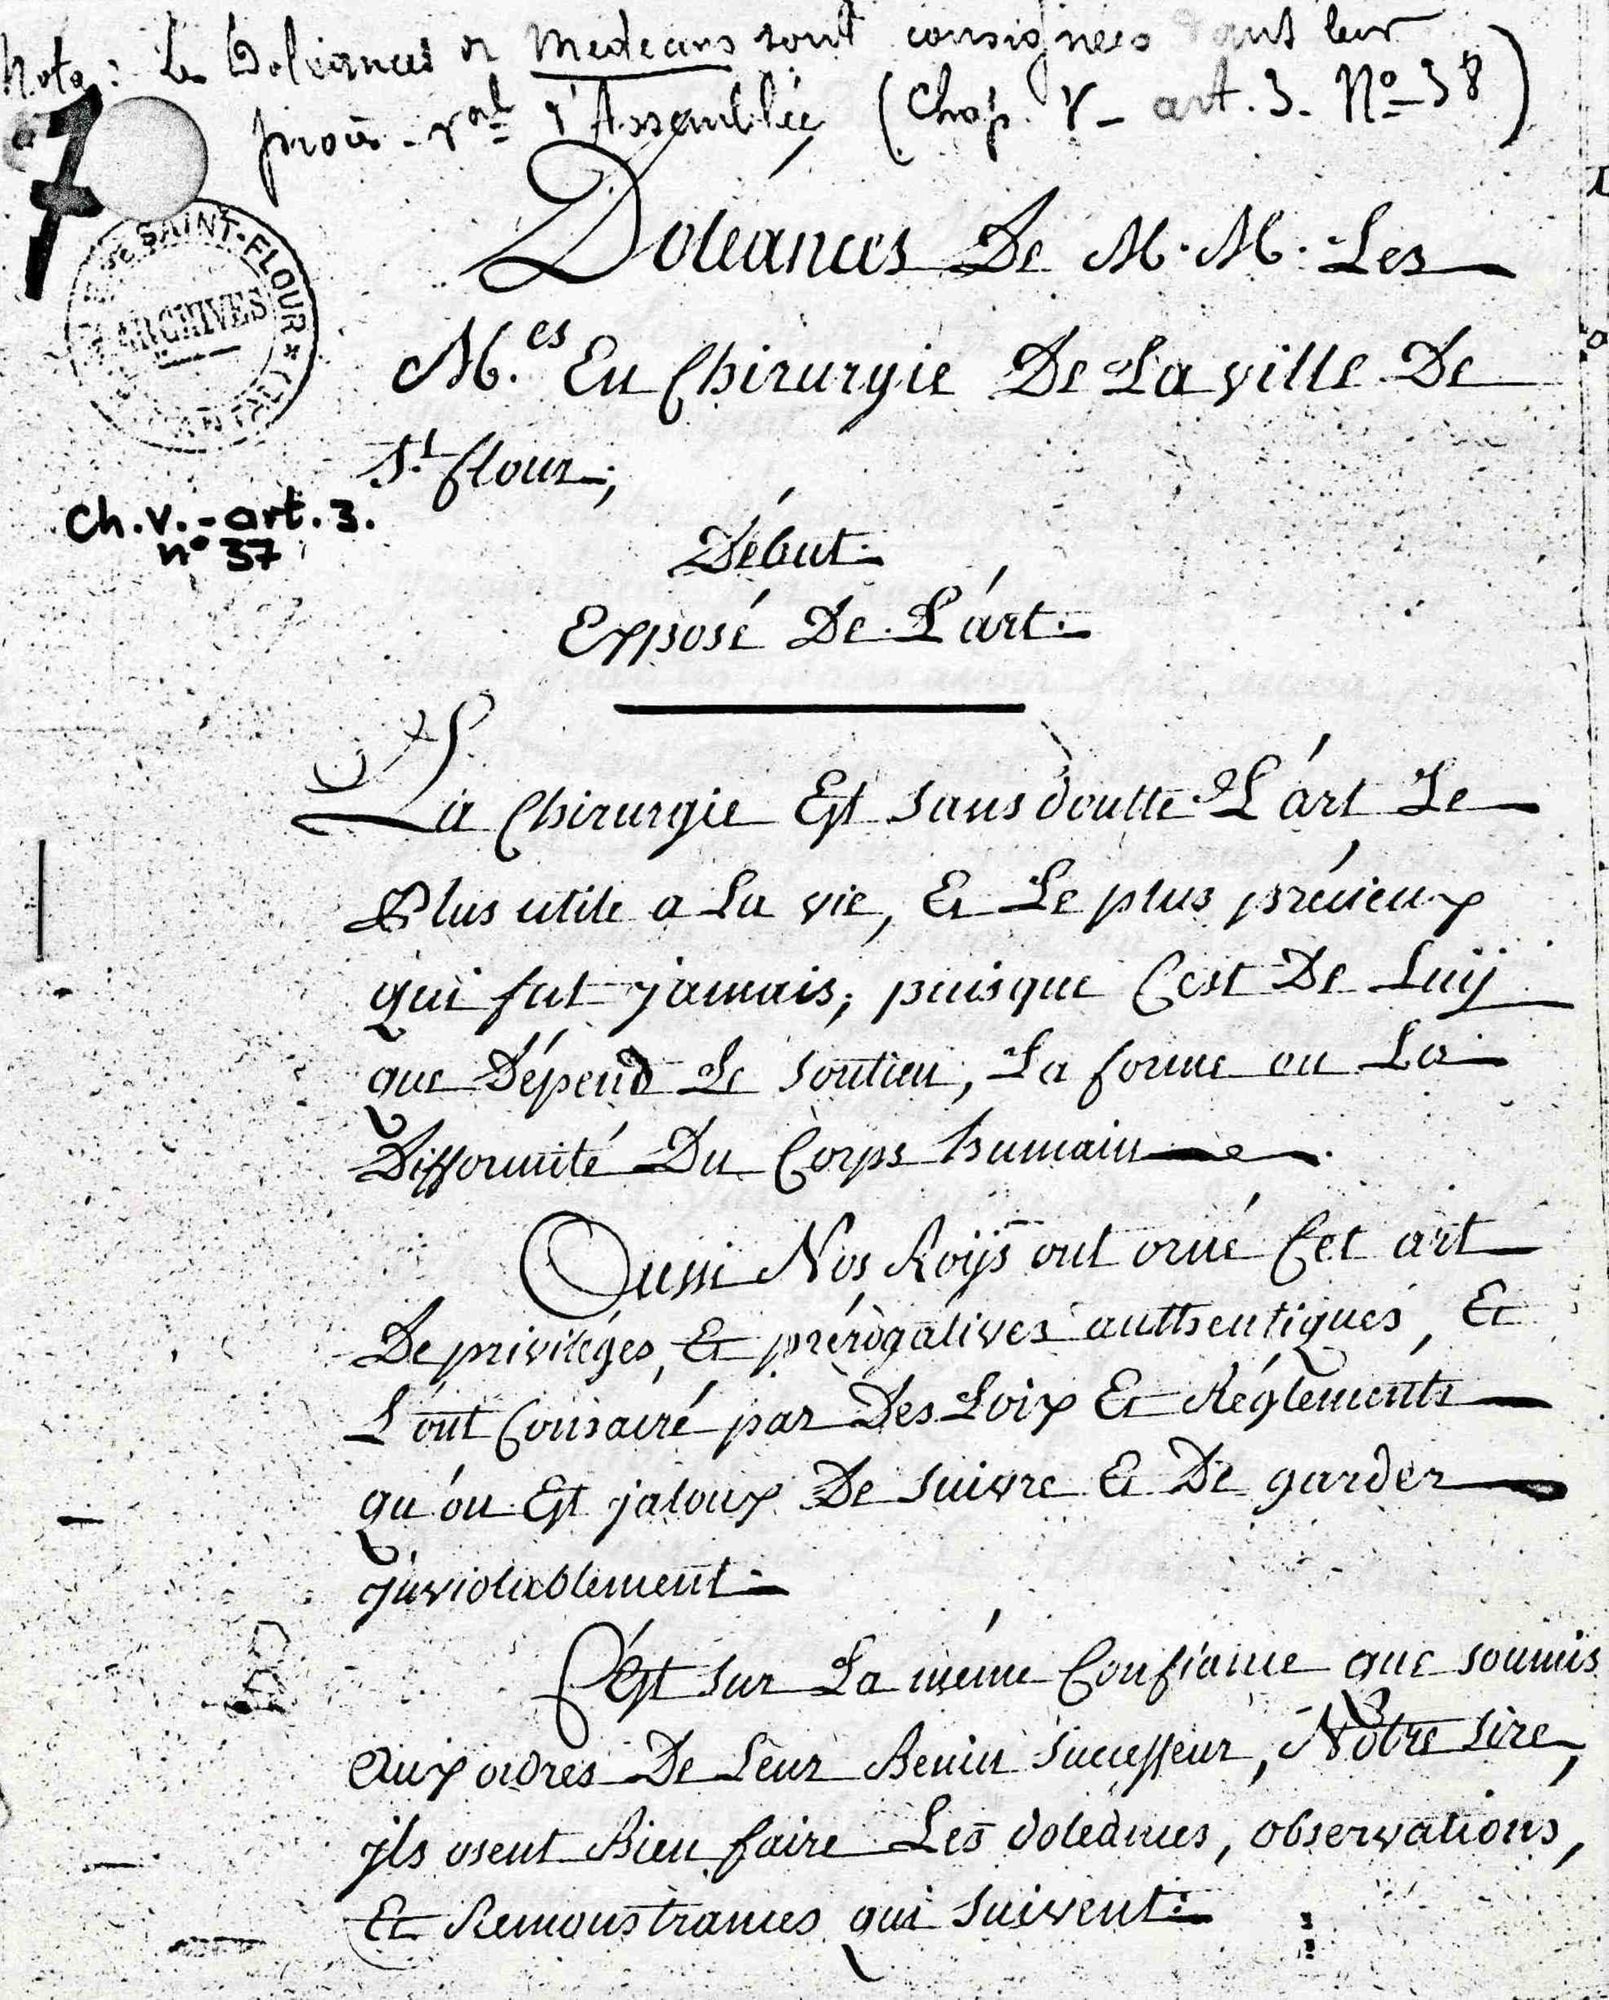 Nota : Les Doléances des Médecins sont consignées dans leur
procès-v^al d'Assemblée (Chap. V - art. 3 - N° 38)
7
SAINT-FLOUR
ARCHIVES
Doléances De M.M. Les
M.es En Chirurgie De La ville De
St flour ;
Ch. V. - art. 3.
n° 37
Début
Exposé De L'art.
La Chirurgie Est sans doutte L'art Le
Plus utile a La vie, Et Le plus précieux
qui fut jamais, puisque C'est De Luy
que Dépend Le soutien, La forme ou La
Difformité Du Corps humain.
Aussi Nos Roys ont orné Cet art
De priviléges, Et prérogatives authentiques, Et
L'ont Consacré par Des Loix Et Réglements
qu'on Est jaloux De suivre Et De garder
jnviolablement.
C'est sur La même Confiance que soumis
aux ordres De Leur Benin successeur, Notre sire,
jls osent Bien faire Les doléances, observations,
Et Remonstrances qui suivent :